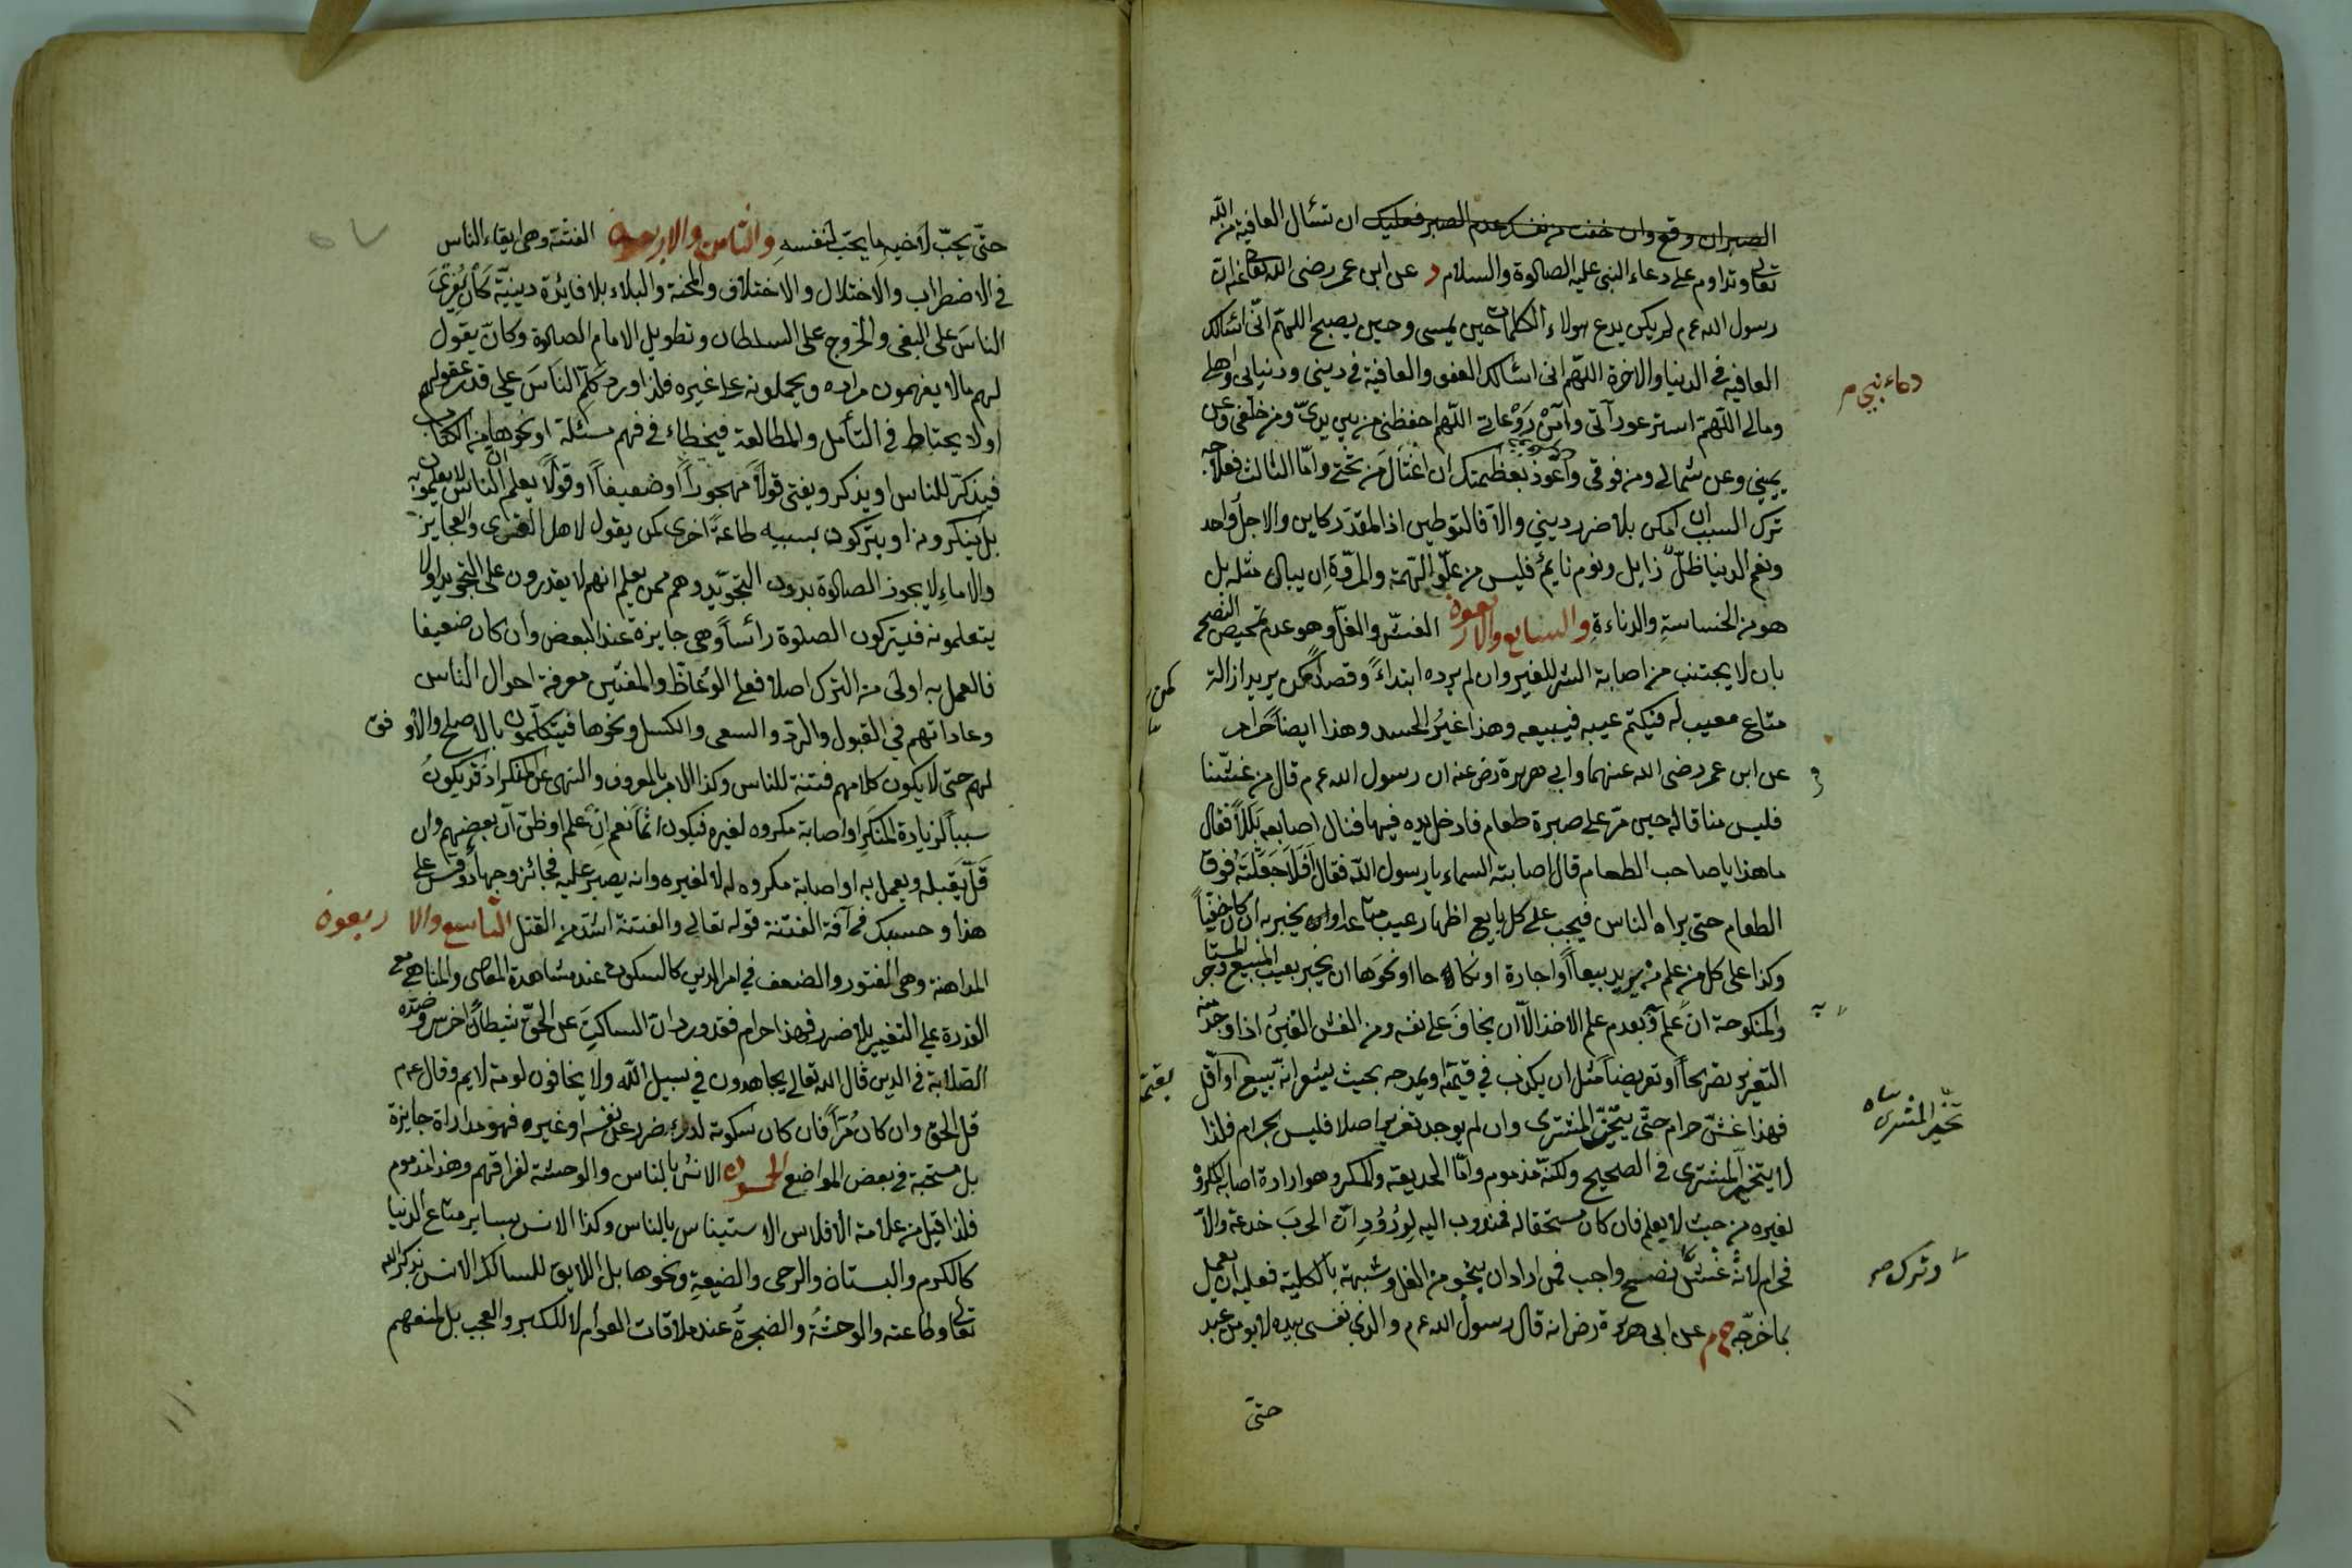 الصبر ان وقع وان خفت من نفسك عدم الصبر فعليك ان تسأل العافية من الله
تعالى وتداوم على دعاء النبي عليه الصلوة والسلام د عن ابن عمر رضى الله تعالى عنه ان
رسول الله عم لم يكن يدع هولاء الكلمات حين يمسى وحين يصبح اللهم انى اسئالك
العافية فى الدنيا والاخرة اللهم انى اسئالك العفو والعافية فى دينى ودنياى واهلى
ومالى اللهم استر عوراتى وآمن روعاتى اللهم احفظنى من بين يدىّ ومن خلفى وعن
يمينى وعن شمالى ومن فوقى واعوذ بعظمتك ان اغتال من تحتى وامّا الثالث فعلاجه
ترك السبب ان امكن بلا ضرر دينى والّا فالتوطين اذ المقدّر كاين والاجل واحد
ونعم الدنيا ظلّ زايل ونوم نايم فليس من علوّ الهمة والمروّة ان يبالى مثله بل
هو من الخساسة والدناءة والسابع والاربعون الغشّ والغلّ وهو عدم تمحيض النصح
بان لا يجتنب من اصابة الشر للغير وان لم يرده ابتداءً وقصداً كمن يريد ازالة
متاع معيب له فيكتم عيبه فيبيعه وهذا غير الحسد وهذا ايضاً حرام
عن ابن عمر رضى الله عنهما وابى هريرة رض عنه ان رسول الله عم قال من غشّنا
فليس منا قاله حين مرّ على صبرة طعام فادخل يده فيها فنال اصابعه بللاً فقال
ما هذا يا صاحب الطعام قال اصابته السماء يا رسول الله فقال أفلا جعلته فوق
الطعام حتى يراه الناس فيجب على كل بايع اظهار عيب متاعه او ان يخبر به ان كان خفيّاً
وكذا على كل من علم من يريد بيعاً او اجارة او نكاحا او نحوها ان يخبر بعيب المبيع والمستاجر
والمنكوحة ان علم وبعدم علم الاخذ الّا ان يخاف على نفسه ومن الغش الغبن اذا وجد منه
التغرير تصريحاً او تعريضاً مثل ان يكذب فى قيمته او يمدحه بحيث يشعر انه يبيع او اقل
فهذا غشّ حرام حتى يتخيّر المشترى وان لم يوجد تغرير اصلا فليس بحرام فلذا
لا يتخيّر المشترى فى الصحيح ولكنه مذموم وامّا الخديعة والمكر وهو ارادة اصابة المكروه
لغيره من حيث لا يعلم فان كان مستحقا له فمندوب اليه لورود ان الحرب خدعة والّا
فحرام لانه غشّ نصح واجب فمن اراد ان ينجو من الغل وشبهه بالكلية فعليه ان يعمل
بما خرّجه خ م عن ابى هريرة رض انه قال رسول الله عم والذى نفسى بيده لا يؤمن عبد
حتى
دعاء نبى م
كمن
بقيمته
تخيّر المشترى
وترك صح
حتى يحبّ لاخيه ما يحبّ لنفسه والثامن والاربعون الفتنة وهى ايقاع الناس
فى الاضطراب والاختلال والاختلاف والمحنة والبلاء بلا فايدة دينيّة كان يُغرى
الناس على البغى والخروج على السلطان وتطويل الامام الصلوة وكان يقول
لهم ما لا يفهمون مراده ويحملونه على غيره فلذا ورد كلّم الناس على قدر عقولهم
او لا يحتاط فى التأمل والمطالعة فيخطاء فى فهم مسئلة او نحوها من الكتاب
فيذكّر للناس او يذكر ويفتى قولاً مهجوراً او ضعيفاً او قولاً يعلم ان الناس لا يعلمون به
بل ينكرونه او يتركون بسببه طاعة اخرى كمن يقول لاهل القرى والعجايز
والاماء لا يجوز الصلوة بدون التجويد وهم ممن يعلم انهم لا يقدرون على التجويد او لا
يتعلمونه فيتركون الصلوة رأساً وهى جايزة عند البعض وان كان ضعيفا
فالعمل به اولى من الترك اصلا فعلى الوعّاظ والمفتين معرفة احوال الناس
وعاداتهم فى القبول والردّ والسعى والكسل ونحوها فيتكلّمون بالاصلح والاوفق
لهم حتى لا يكون كلامهم فتنة للناس وكذا الامر بالمعروف والنهى عن المنكر اذ قد يكون
سبباً لزيادة المنكر او اصابة مكروه لغيره فيكون اثماً نعم ان علم او ظنّ ان بعضهم وان
قلّ يقبله ويعمل به او اصابة مكروه له لا لغيره وانه يصبر عليه فجائز وجهاد وقس على
هذا وحسبك فى آفة الفتنة قوله تعالى والفتنة اشد من القتل التاسع والاربعون
المداهنة وهى الفتور والضعف فى امر الدين كالسكوت عند مشاهدة المعاصى والمناهى مع
القدرة على التغيير بلا ضرر فهذا حرام فقد ورد ان الساكت عن الحقّ شيطان اخرس وضدّه
الصلابة فى الدين قال الله تعالى يجاهدون فى سبيل الله ولا يخافون لومة لايم وقال عم
قل الحق وان كان مُرّاً فان كان سكوته لدفع ضرر عن نفسه او غيره فهو مداراة جايزة
بل مستحبّة فى بعض المواضع الخمسون الانس بالناس والوحشة لفراقهم وهذا مذموم
فلذا قيل من علامة الافلاس الاستيناس بالناس وكذا الانس بساير متاع الدنيا
كالكرم والبستان والرحى والضيعة ونحوها بل اللايق للسالك الانس بذكر الله
تعالى وطاعته والوحشة والضجرة عند ملاقات العوام لا للكبر والعجب بل لمنعهم